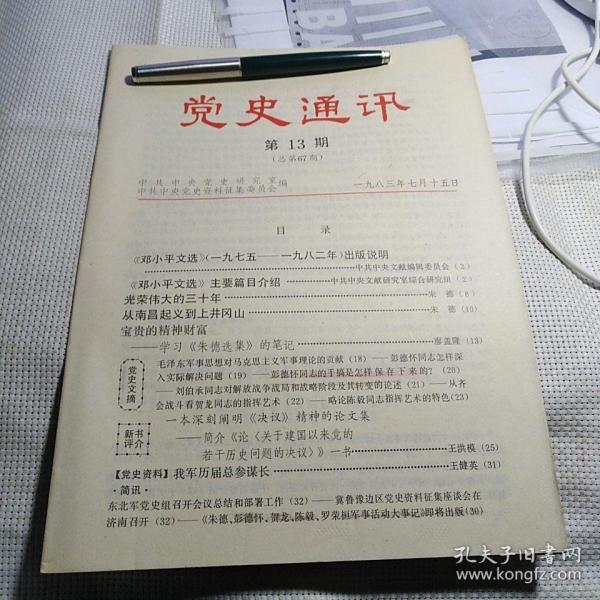 党史通讯
第13期
(总第67期)
中共中央党史研究室
中共中央党史资料征集委员会 编
一九八三年七月十五日
目录
《邓小平文选》(一九七五——一九八二年)出版说明
中共中央文献编辑委员会(2)
《邓小平文选》主要篇目介绍 中共中央文献研究室综合研究组(2)
光荣伟大的三十年 朱德(6)
从南昌起义到上井冈山 朱德(10)
宝贵的精神财富
——学习《朱德选集》的笔记 廖盖隆(13)
党史文摘
毛泽东军事思想对马克思主义军事理论的贡献(18)——彭德怀同志怎样深
入实际解决问题(19)——彭德怀同志的手稿是怎样保存下来的?(20)
——刘伯承同志对解放战争战局和战略阶段及其转变的论述(21)——从齐
会战斗看贺龙同志的指挥艺术(22)——略论陈毅同志指挥艺术的特色(23)
新书评介
一本深刻阐明《决议》精神的论文集
——简介《论〈关于建国以来党的
若干历史问题的决议〉》一书 王洪模(25)
【党史资料】我军历届总参谋长 王健英(31)
·简讯·
东北军党史组召开会议总结和部署工作(32)——冀鲁豫边区党史资料征集座谈会在
济南召开(32)——《朱德、彭德怀、贺龙、陈毅、罗荣桓军事活动大事记》即将出版(30)
孔夫子旧书网
www.kongfz.com